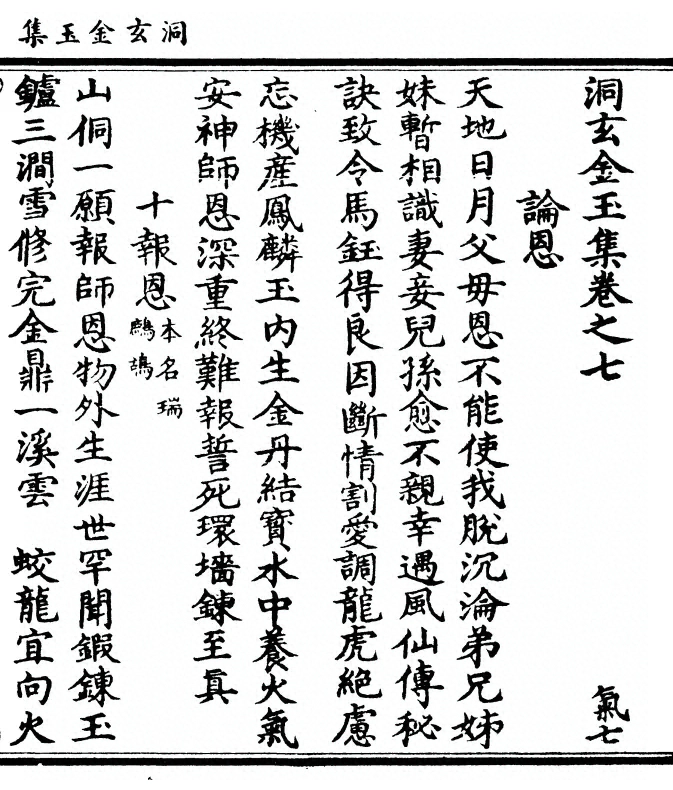 洞玄金玉集
洞玄金玉集卷之七 氣七
論恩
天地日月父母恩不能使我脫沉淪弟兄姊
妹暫相識妻妾兒孫愈不親幸遇風仙傳秘
訣致令馬鈺得良因斷情割愛調龍虎絕慮
忘機產鳳麟玉內生金丹結寶水中養火氣
安神師恩深重終難報誓死環墻鍊至真
十報恩 本名瑞鷓鴣
山侗一願報師恩物外生涯世罕聞鍜鍊玉
鑪三澗雪修完金鼎一溪雲 蛟龍宜向火